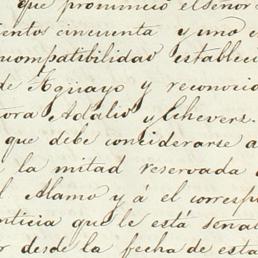 que pronunció el Señor
ientos cincuenta y uno e
compatibilidad estableci
de Aguayo y reconocio
tora Adalio y Chevers.
que debe considerarse a
la mitad reservada
l Alamo y á el corresp
nticia que le está señal
r desde la fecha de esta